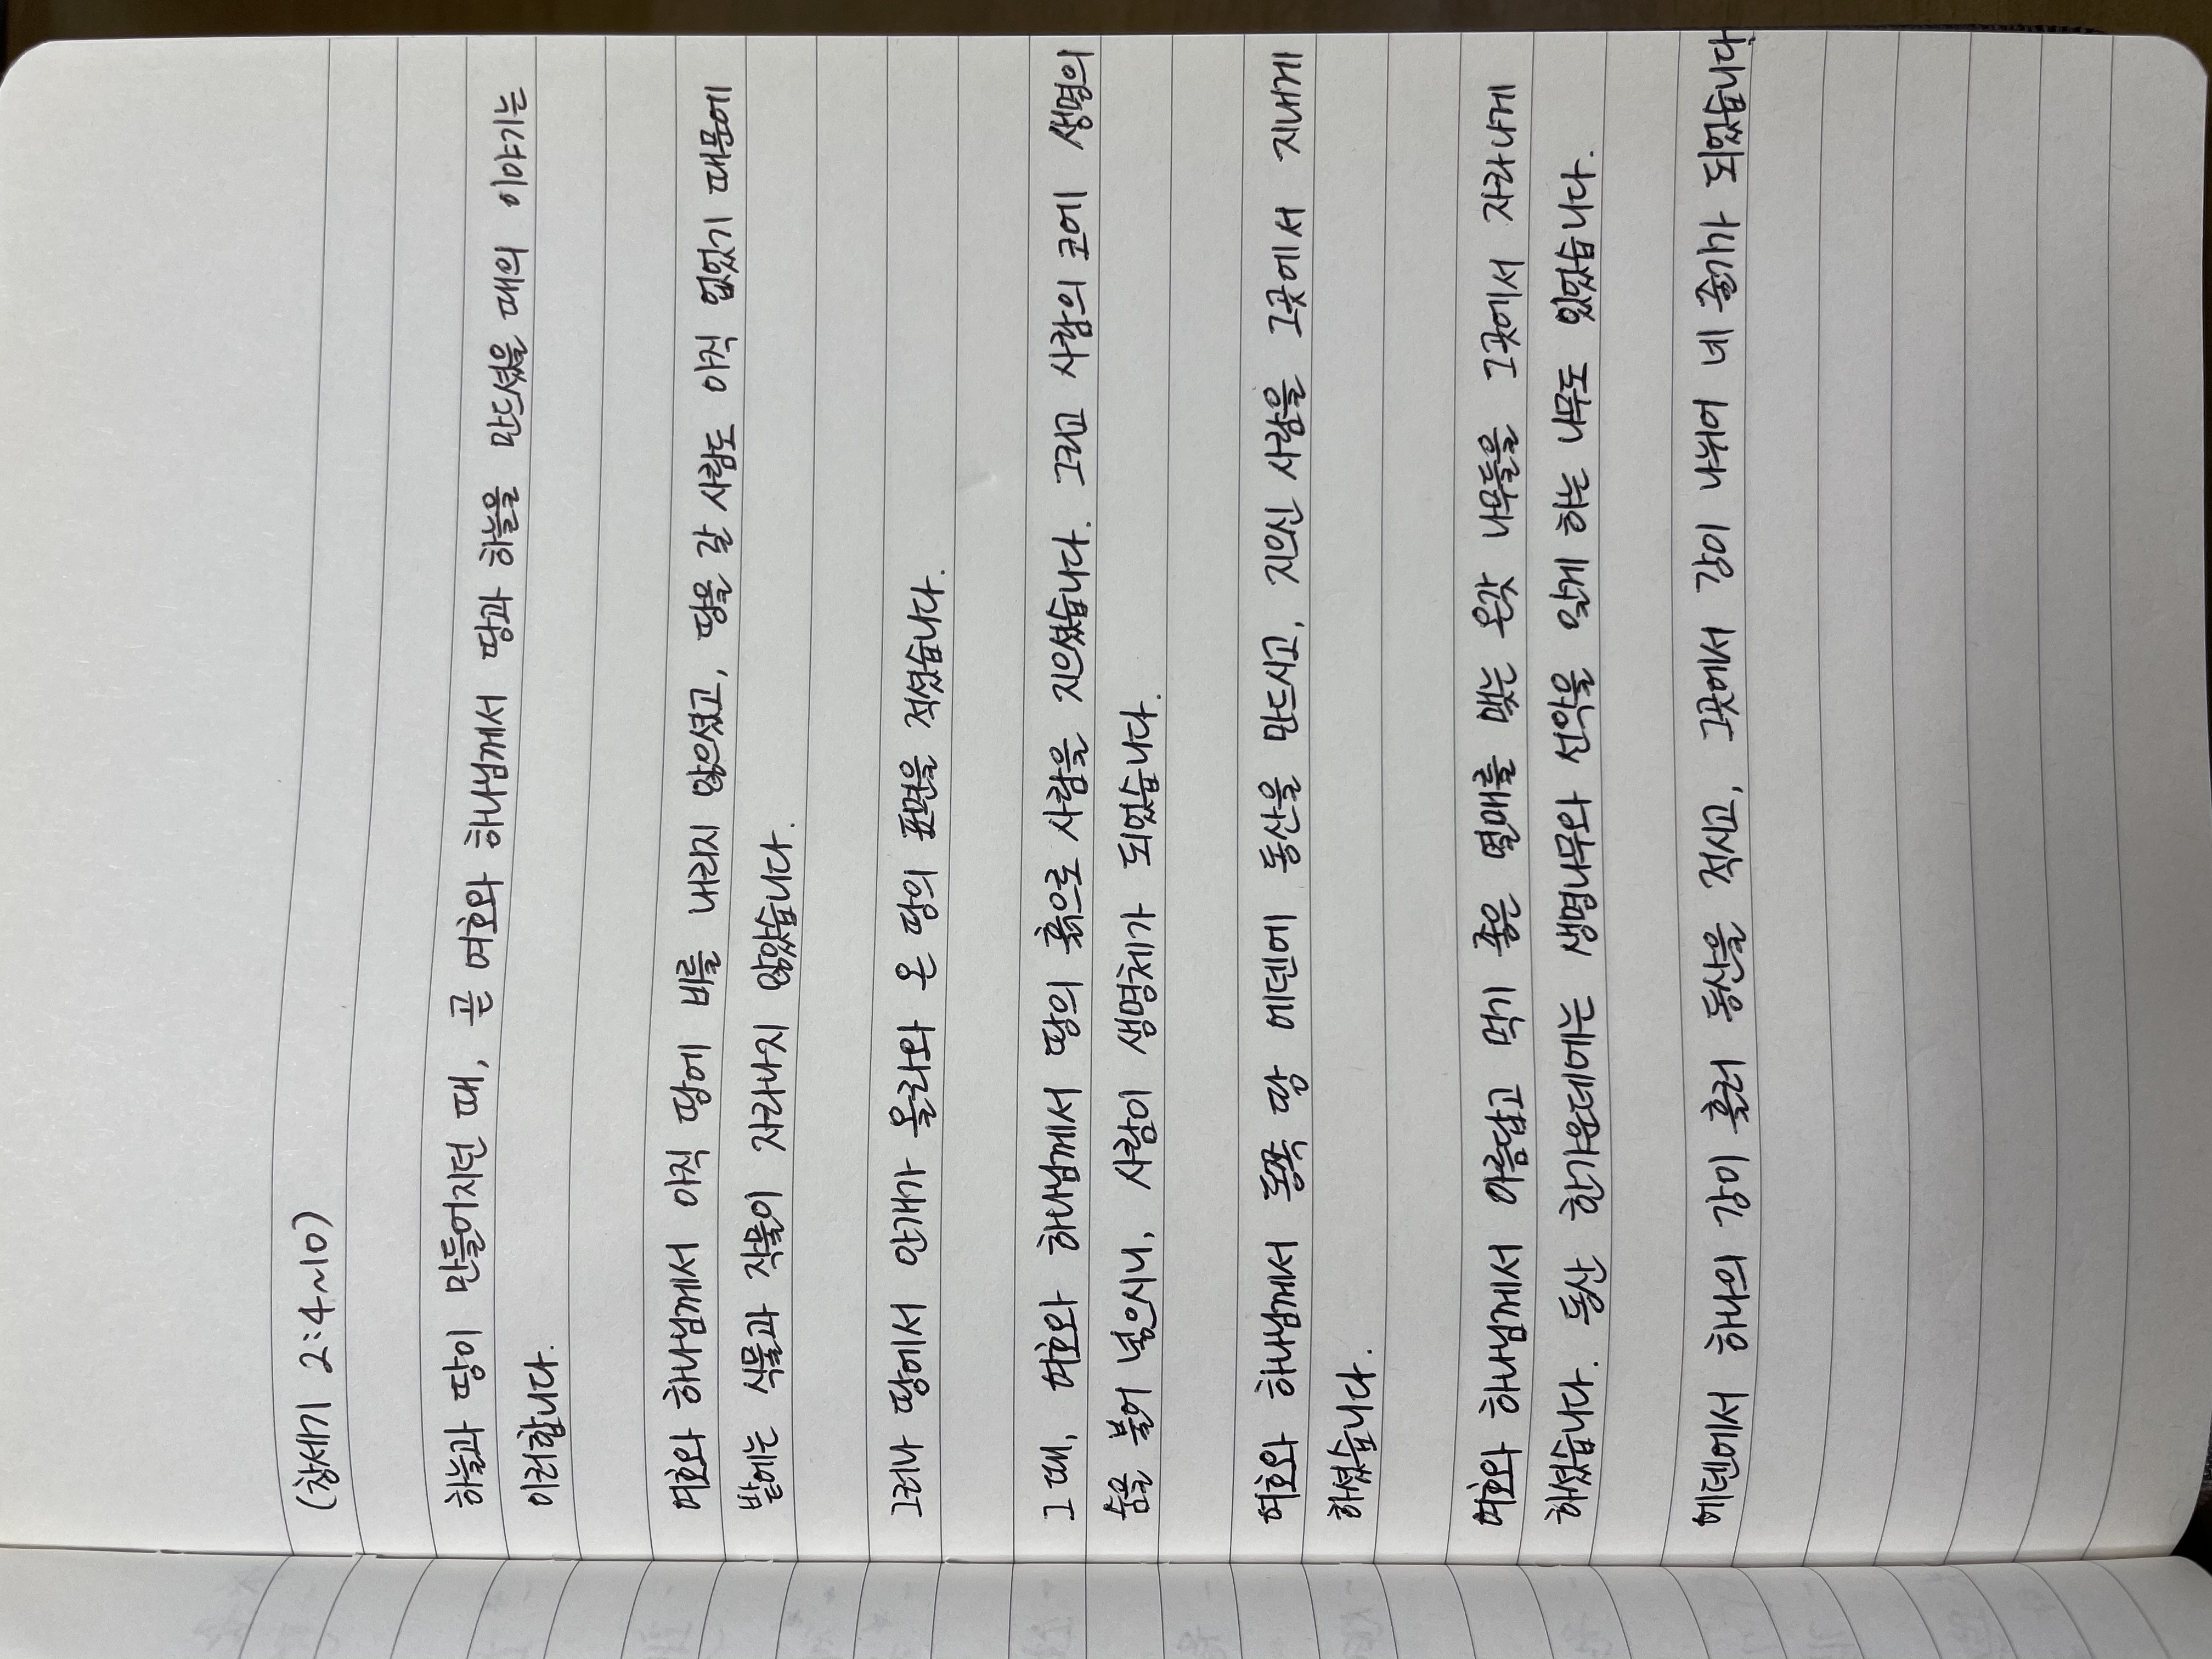 (창세기 2:4~10)
하늘과 땅이 만들어지던 때, 곧 여호와 하나님께서 땅과 하늘을 만드셨을 때의 이야기는
이러합니다.
여호와 하나님께서 아직 땅에 비를 내리지 않으셨고, 땅을 갈 사람도 아직 없었기 때문에
밭에는 식물과 작물이 자라나지 않았습니다.
그러나 땅에서 안개가 올라와 온 땅의 표면을 적셨습니다.
그 때, 여호와 하나님께서 땅의 흙으로 사람을 지으셨습니다. 그리고 사람의 코에 생명의
숨을 불어 넣으시니, 사람이 생명체가 되었습니다.
여호와 하나님께서 동쪽 땅 에덴에 동산을 만드시고, 지으신 사람을 그곳에서 지내게
하셨습니다.
여호와 하나님께서 아름답고 먹기 좋은 열매를 맺는 온갖 나무들을 그곳에서 자라나게
하셨습니다. 동산 한가운데에는 생명나무와 선악을 알게 하는 나무도 있었습니다.
에덴에서 하나의 강이 흘러 동산을 적시고, 그곳에서 강이 나뉘어 네 줄기가 되었습니다